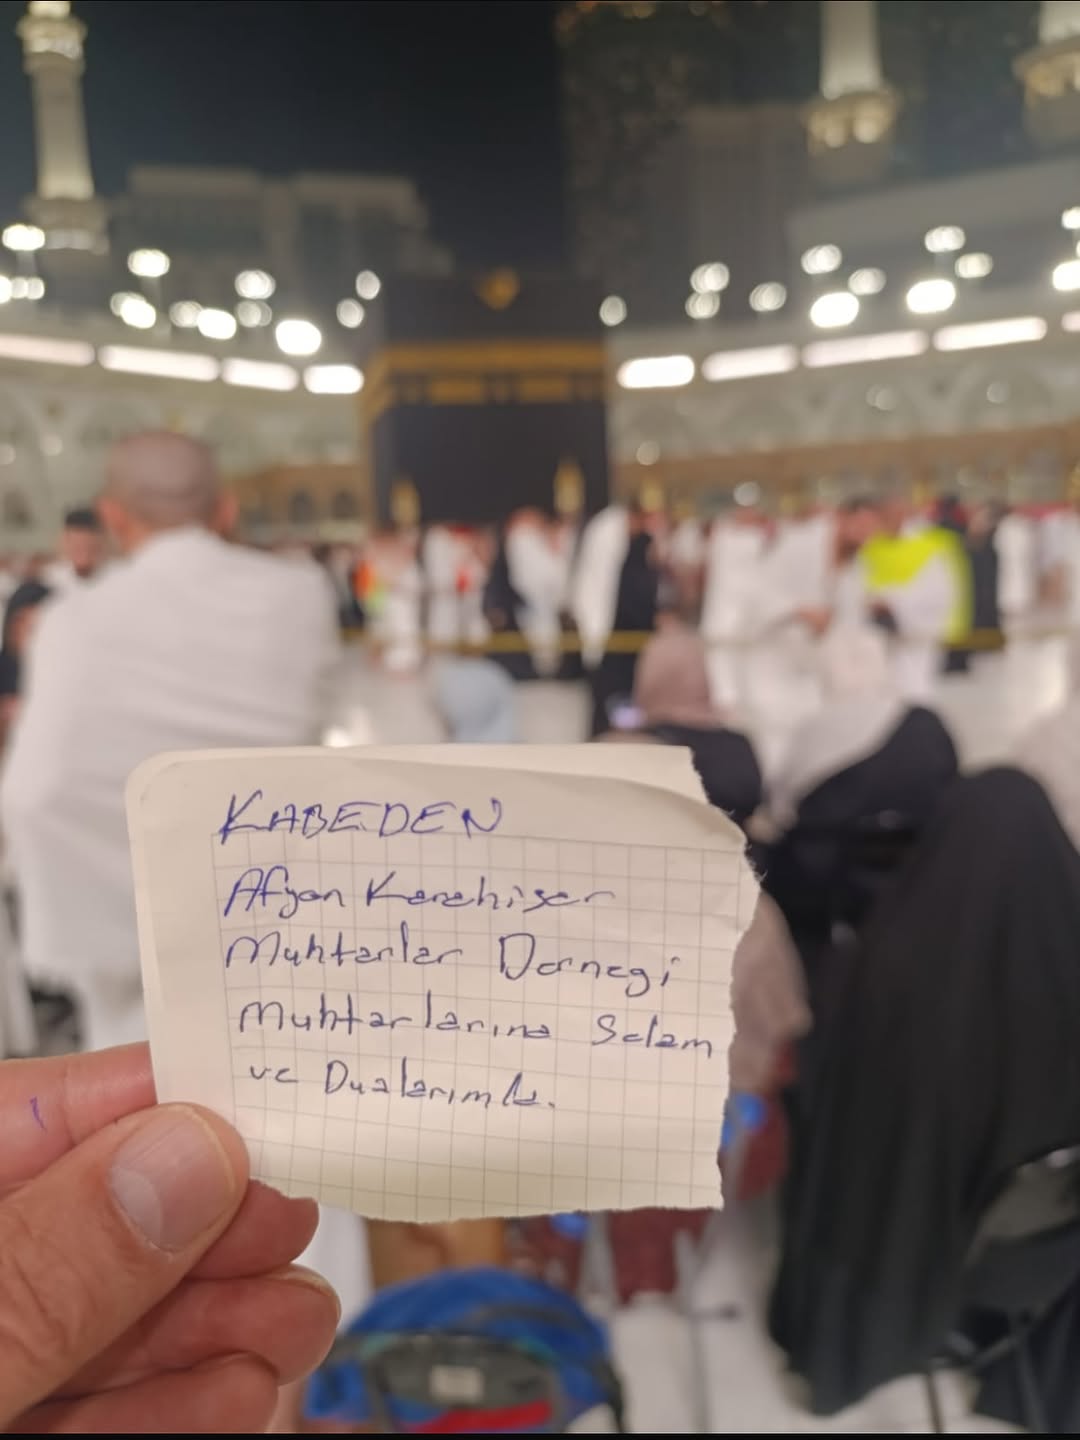 KABEDEN
Afyon Karahisar
Muhtarlar Dernegi
Muhtarlarına Selam
ve Dualarımla.